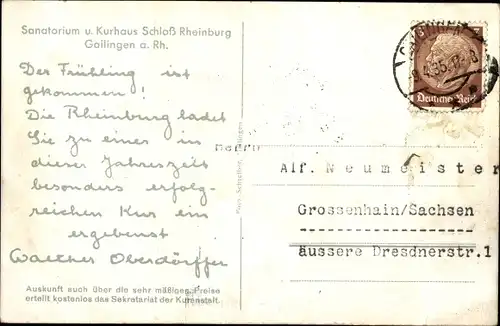 Sanatorium u. Kurhaus Schloß Rheinburg
Gailingen a. Rh.
Der Frühling ist
gekommen!
Die Rheinburg ladet
Sie zu einer in
dieser Jahreszeit
besonders erfolg-
reichen Kur ein
ergebenst
Walther Oberdörffer
Auskunft auch über die sehr mäßigen Preise
erteilt kostenlos das Sekretariat der Kuranstalt.
Deutsches Reich
Herrn
Alf. Neumeister
Grossenhain/Sachsen
äussere Dresdnerstr.1